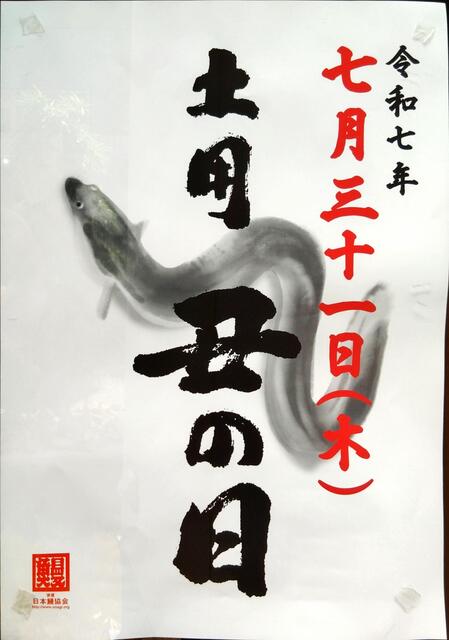 令和七年
七月三十一日(木)
土用
丑の日
日本鰻協会
http://www.unagi.org